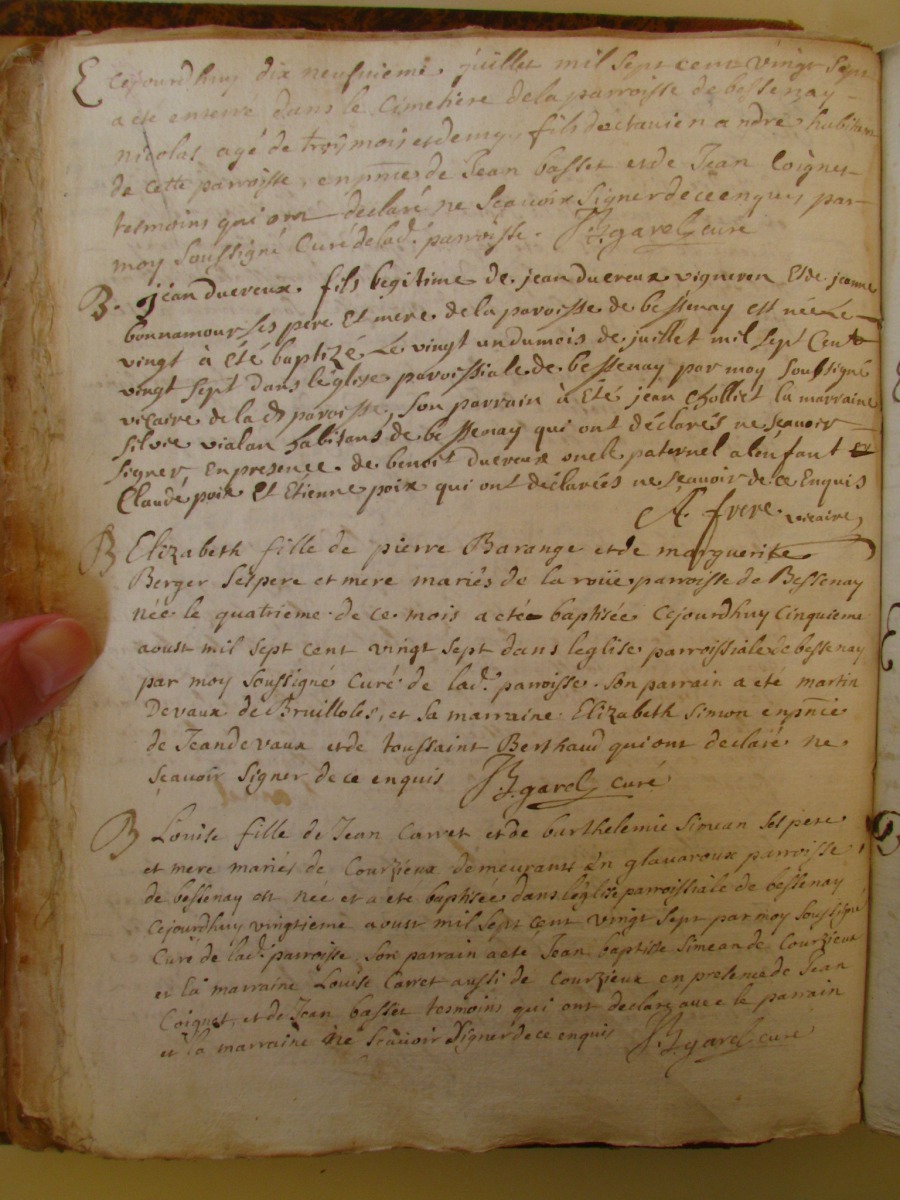 E cejourdhuy dix neufuieme juillet mil sept cent vingt sept
a ete enterré dans le Cimetiere de la parroisse de bessenay
nicolas agé de trois mois et demy, fils doctauien andre habitant
de cette parroisse, en pnce de Jean basset et de Jean Coignet
tesmoins qui ont declaré ne Scauoir Signer de ce enquis par
moy Soussigné Curé de lad. parroisse. JB. garel curé
B. jean duereux. fils legitime de jean duereux vigneron Et de jeanne
bonnamour ses pere Et mere de la paroisse de bessenay est née Le
vingt à été baptizé Le vingt un du mois de juillet mil sept Cent
vingt sept dans léglise paroissiale de bessenay par moy Soussigné
vicaire de lad paroisse, Son parrain à Eté jean Cholliet la marraine
Silvie vialan habitans de bessenay qui ont déclarés ne Scauoir
signer En presence de benoit duereux oncle paternel a lenfant et
Claude poix Et Etienne poix qui ont déclarées ne Scauoir de ce Enquis
A. frere vicaire
B Elizabeth fille de pierre Barange et de marguerite
Berger Ses pere et mere mariés de la roüe parroisse de Bessenay
née le quatrieme de ce mois a eté baptisée Cejourdhuy Cinquieme
aoust mil sept cent vingt sept dans leglise parroissiale de bessenay
par moy Soussigné Curé de lad. parroisse. Son parrain a eté martin
Devaux de Bruilloles, et Sa marraine Elizabeth Simon en pnce
de Jean devaux et de toussaint Berthaud qui ont declaré ne
Scauoir Signer de ce enquis JB. garel curé
B Louise fille de Jean Carret et de barthelemie Simean Ses pere
et mere mariés de Courzieux demeurants En glauaroux parroisse
de bessenay est née et a ete baptisée dans léglise parroissiale de bessenay
Cejourdhuy vingtieme aoust mil Sept Cent vingt Sept par moy Soussigné
Curé de lad. parroisse, Son parrain a eté Jean baptiste Simean de Courzieux
et la marraine Louise Carret aussi de Courzieux en presence de Jean
Coignet, et de Jean basset tesmoins qui ont declaré auec le parrain
et la marraine ne Scauoir Signer de ce enquis JB. garel curé